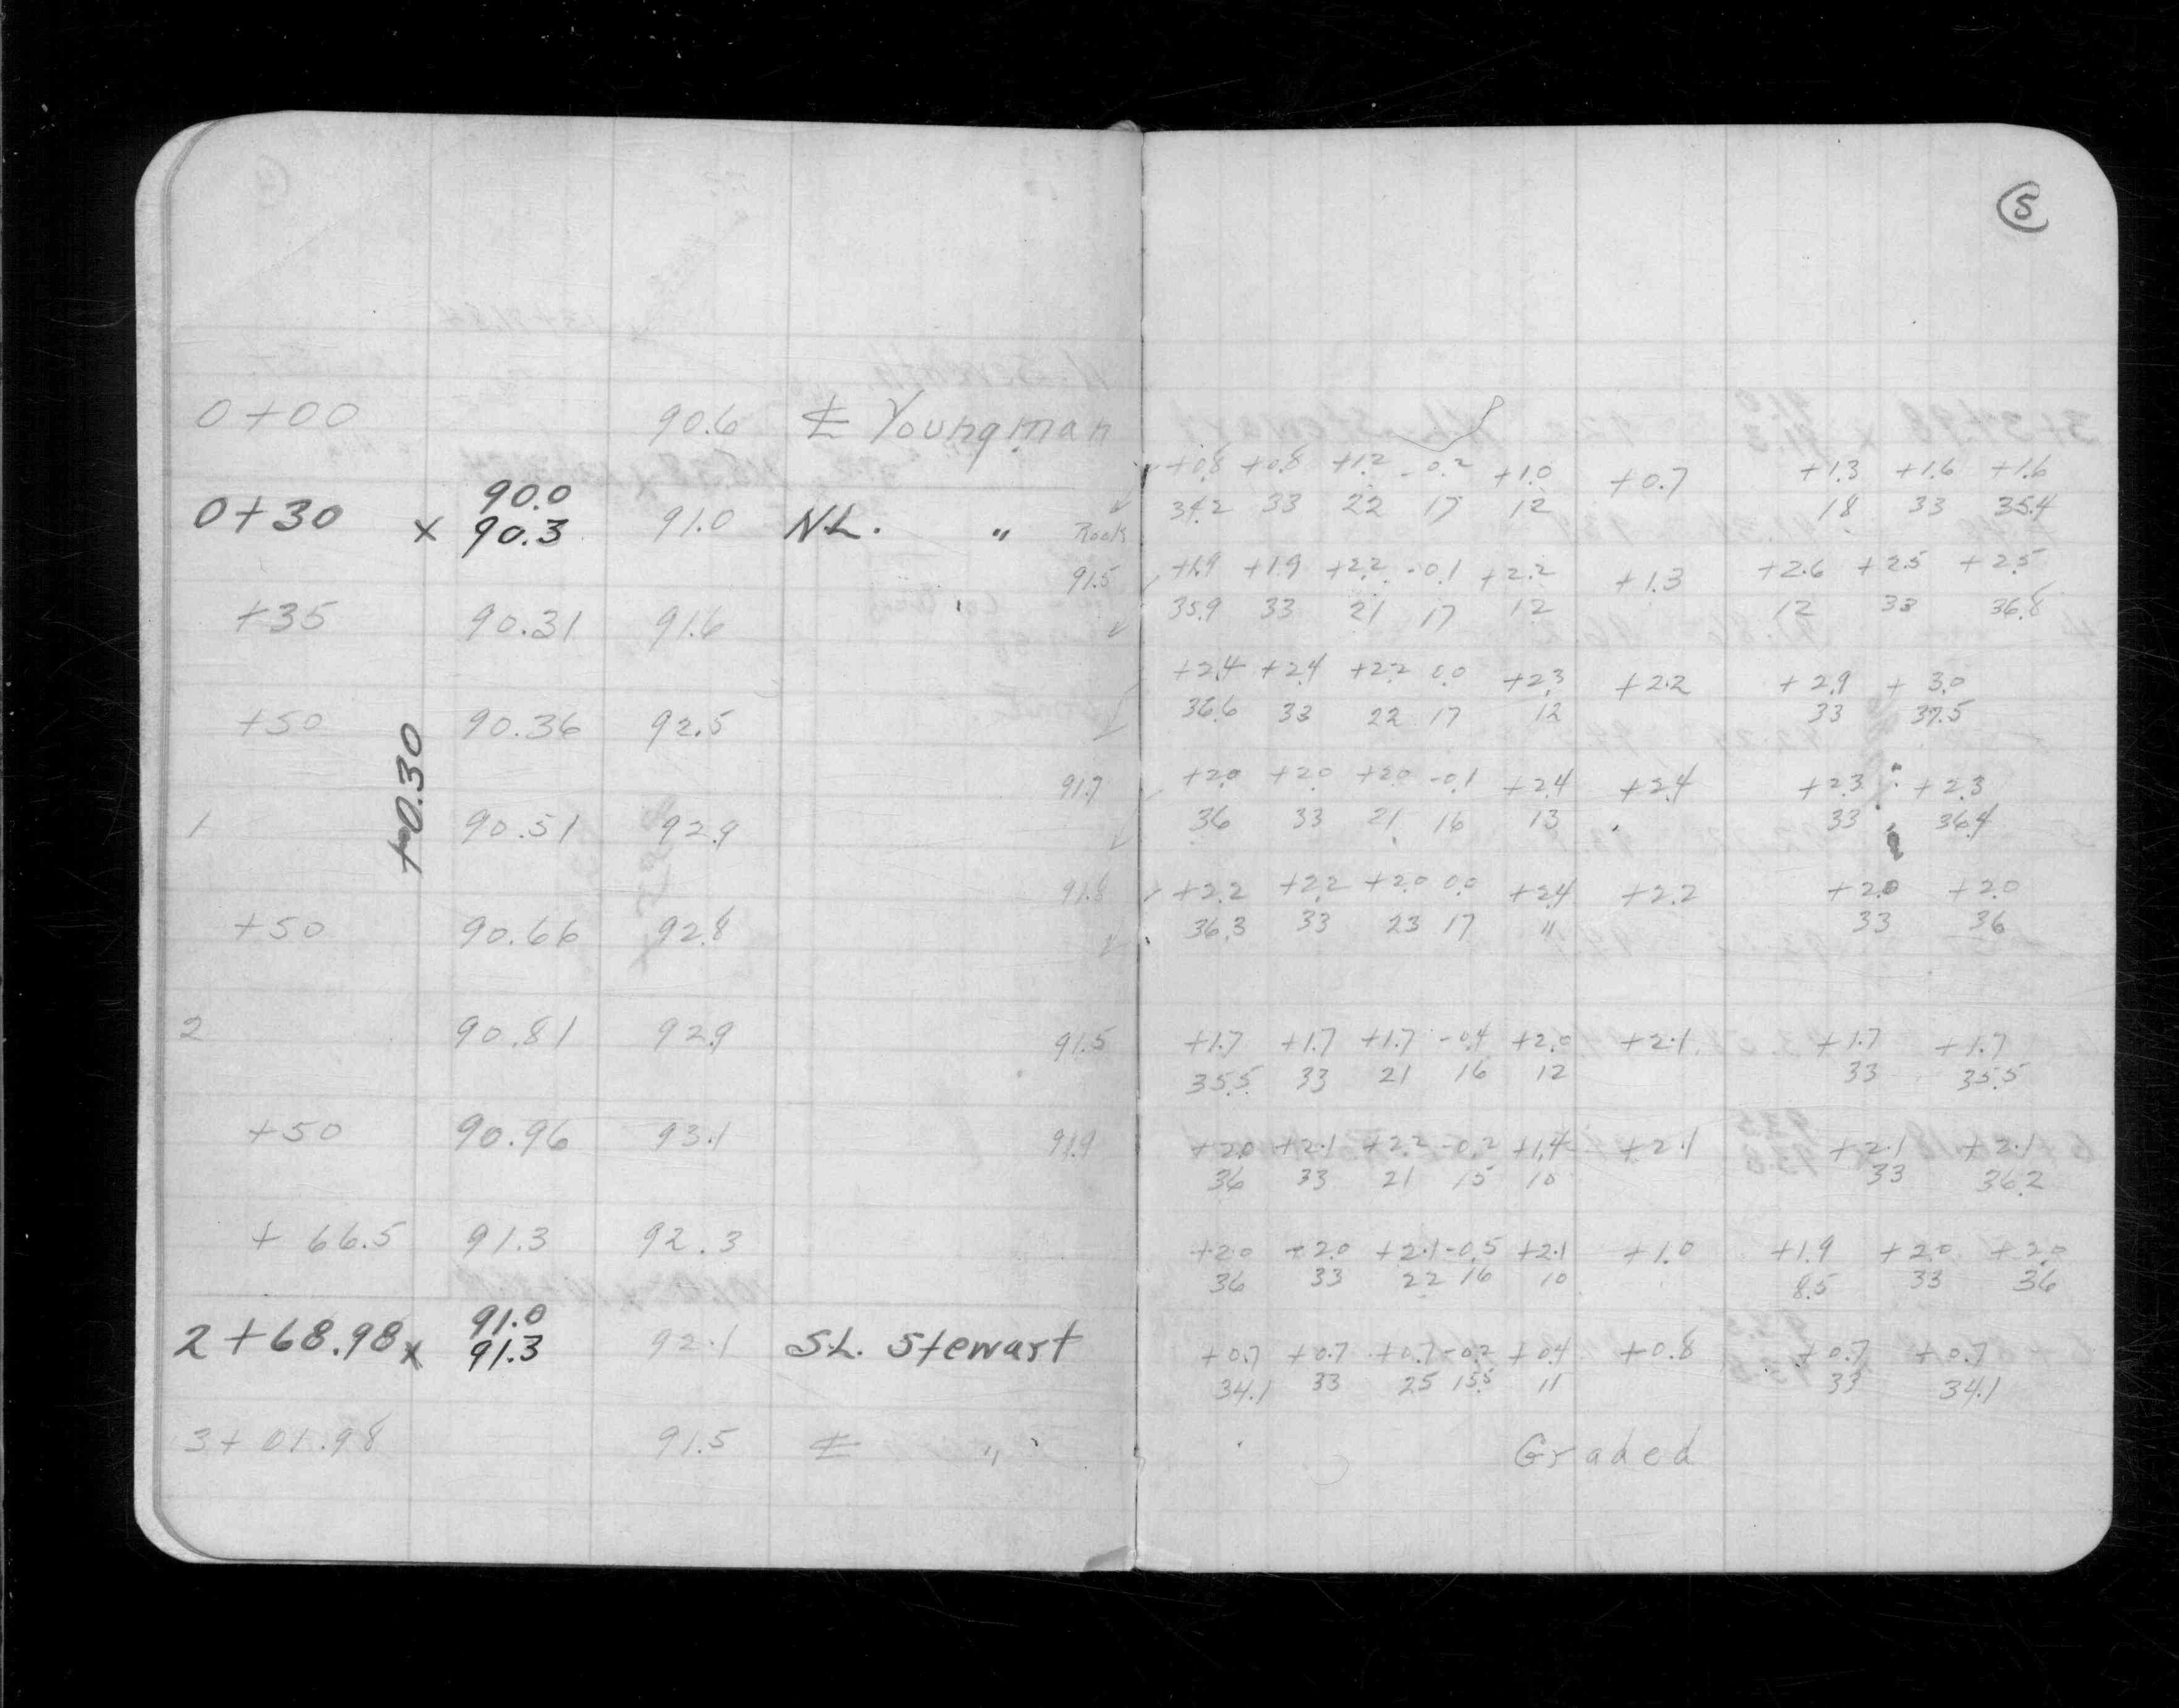 5
0+00 90.6 ℄ Youngman
+0.8 +0.8 +1.2 -0.2 +1.0 +0.7 +1.3 +1.6 +1.6
90.0
0+30 x 90.3 91.0 N.L. " Rock
34.2 33 22 17 12 18 33 35.4
91.5 +1.9 +1.9 +2.2 -0.1 +2.2 +1.3 +2.6 +2.5 +2.5
+35 90.31 91.6
35.9 33 21 17 12 12 33 36.8
+2.4 +2.4 +2.2 0.0 +2.3 +2.2 +2.9 +3.0
+50 90.36 92.5
36.6 33 22 17 12 33 37.5
+0.30
91.7 +2.0 +2.0 +2.0 -0.1 +2.4 +2.4 +2.3 +2.3
1 90.51 92.9
36 33 21 16 13 33 36.4
91.8 +2.2 +2.2 +2.0 0.0 +2.4 +2.2 +2.0 +2.0
+50 90.66 92.8
36.3 33 23 17 " 33 36
2 90.81 92.9 91.5 +1.7 +1.7 +1.7 -0.4 +2.0 +2.1 +1.7 +1.7
35.5 33 21 16 12 33 35.5
+50 90.96 93.1 91.9 +2.0 +2.1 +2.2 -0.2 +1.4 +2.1 +2.1 +2.1
36 33 21 15 10 33 36.2
+66.5 91.3 92.3 +2.0 +2.0 +2.1 -0.5 +2.1 +1.0 +1.9 +2.0 +2.0
36 33 22 16 10 8.5 33 36
91.0
2+68.98 x 91.3 92.1 S.L. Stewart +0.7 +0.7 +0.7 -0.2 +0.4 +0.8 +0.7 +0.7
34.1 33 25 15.5 11 33 34.1
3+01.98 91.5 ℄ " Graded